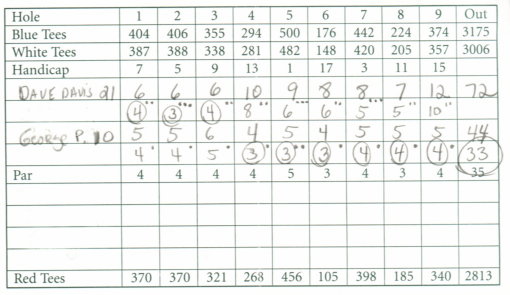 Hole 1 2 3 4 5 6 7 8 9 Out
Blue Tees 404 406 355 294 500 176 442 224 374 3175
White Tees 387 388 338 281 482 148 420 205 357 3006
Handicap 7 5 9 13 1 17 3 11 15
DAVE DAVIS 21 6 6 6 10 9 8 8 7 12 72
4 3 4 8 6 6 5 5 10
George P. 10 5 5 6 4 5 4 5 5 5 44
4 4 5 3 3 3 4 4 4 33
Par 4 4 4 4 5 3 4 3 4 35
Red Tees 370 370 321 268 456 105 398 185 340 2813